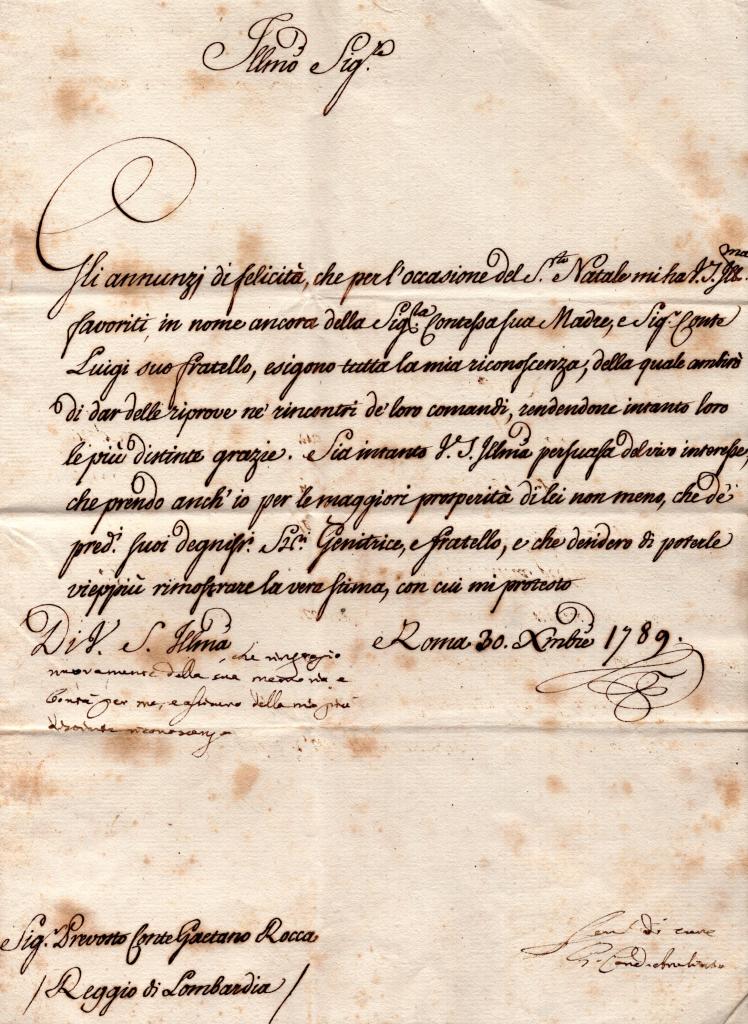 Illmo Sig.re
Gli annunzj di felicità, che per l'occasione del S.to Natale mi ha V. S. Ill.ma
favoriti, in nome ancora della Sig.ra Contessa sua Madre, e Sig.r Conte
Luigi suo fratello, esigono tutta la mia riconoscenza, della quale ambirò
di dar delle riprove ne' rincontri de' loro comandi, rendendone intanto loro
le più distinte grazie. Sia intanto V. S. Illma persuasa del vivo interesse,
che prendo anch' io per le maggiori prosperità di lei non meno, che de'
pred.i suoi degniss.i Sig.ri Genitrice, e fratello, e che desidero di poterle
vieppiù rimostrare la vera stima, con cui mi protesto
Di V. S. Illma Roma 30. Xmbre 1789.
che ringrazio
nuovamente della sua memoria e
bontà per me, e assicuro della mia più
distinta riconoscenza
Sig.r Prevosto Conte Gaetano Rocca
/ Reggio di Lombardia /
di cuore